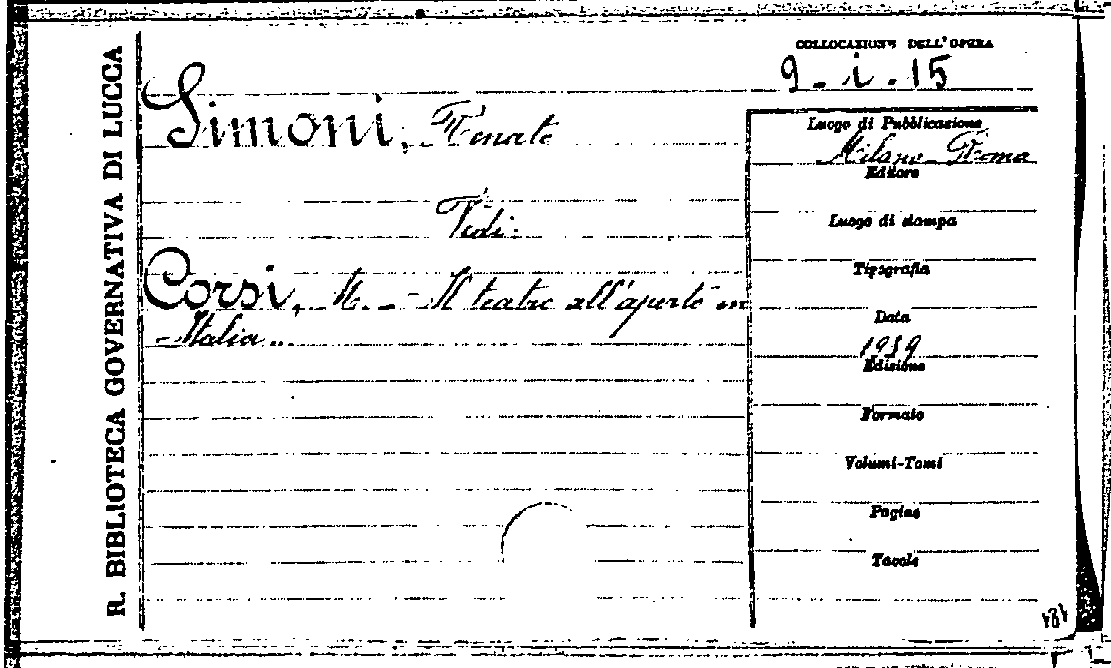 R. BIBLIOTECA GOVERNATIVA DI LUCCA
COLLOCAZIONE DELL'OPERA
9 - i - 15
Simoni, Renato
Vedi:
Corsi, M. - Il teatro all'aperto in
Italia..
Luogo di Pubblicazione
Milano - Roma
Editore
Luogo di stampa
Tipografia
Data
1939
Edizione
Formato
Volumi-Tomi
Pagine
Tavole